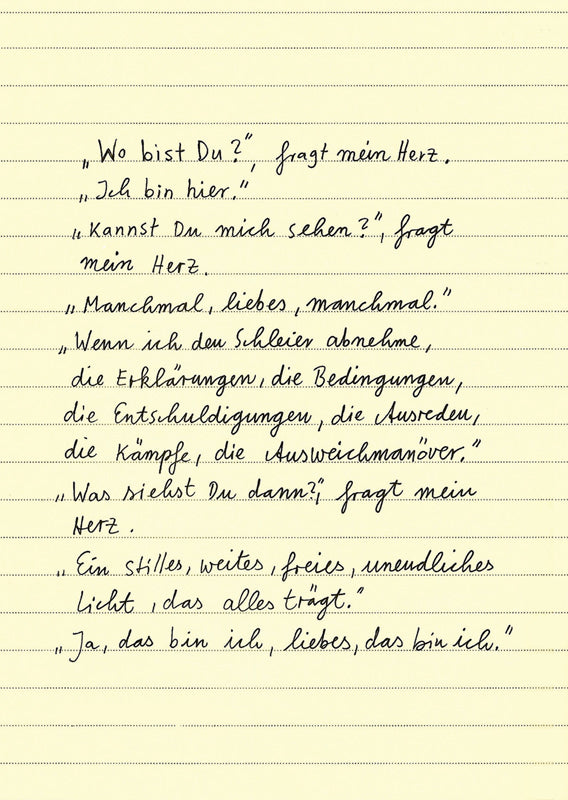 „Wo bist Du?“, fragt mein Herz.
„Ich bin hier.“
„Kannst Du mich sehen?“, fragt
mein Herz.
„Manchmal, liebes, manchmal.“
„Wenn ich den Schleier abnehme,
die Erklärungen, die Bedingungen,
die Entschuldigungen, die Ausreden,
die Kämpfe, die Ausweichmanöver.“
„Was siehst Du dann?“, fragt mein
Herz.
„Ein stilles, weites, freies, unendliches
Licht, das alles trägt.“
„Ja, das bin ich, liebes, das bin ich.“